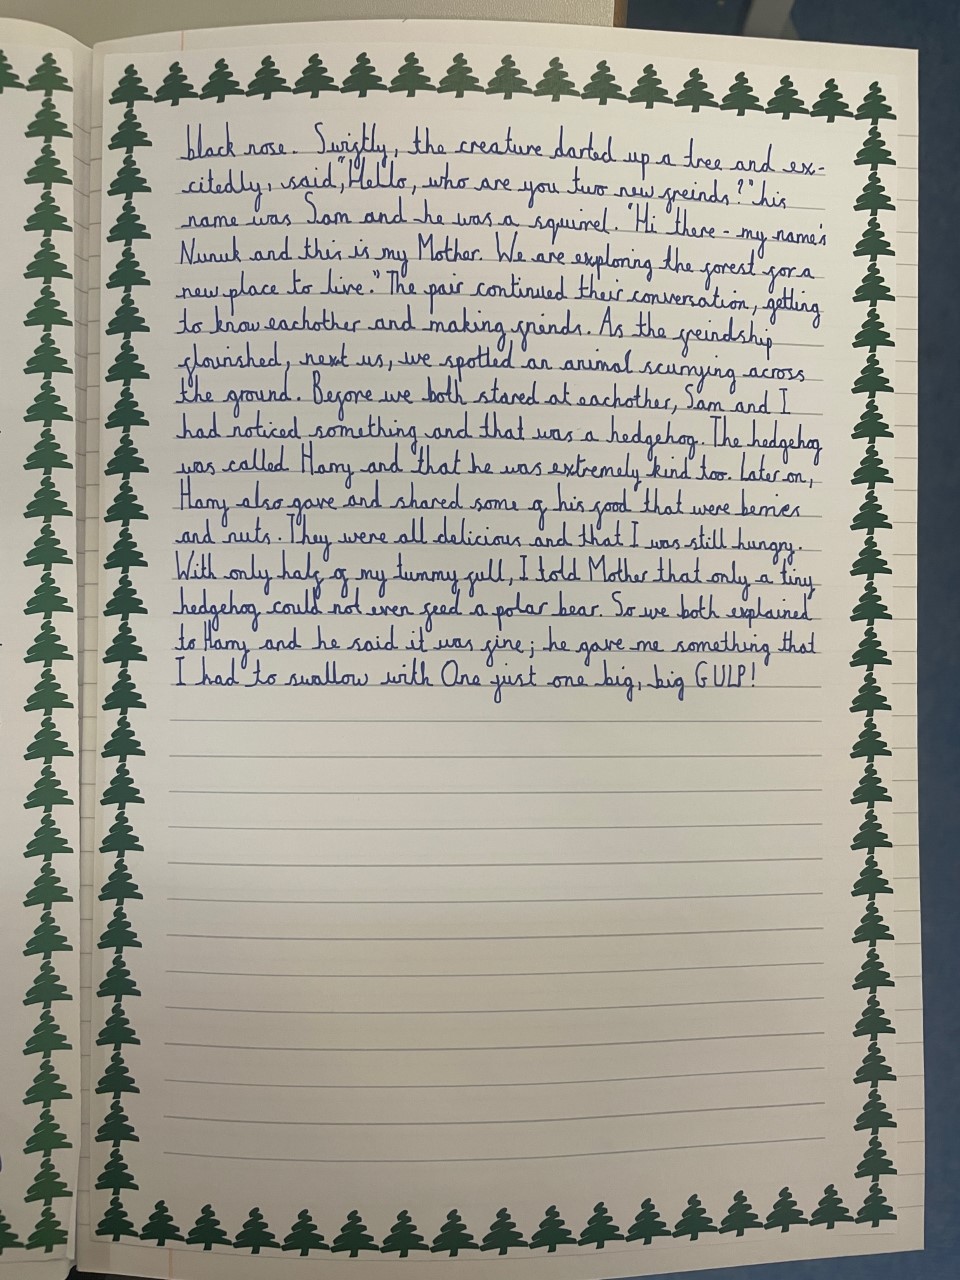 black nose. Swiftly, the creature darted up a tree and ex-
citedly, said, "Hello, who are you two new freinds?" his
name was Sam and he was a squirrel. "Hi there - my name's
Nunuk and this is my Mother. We are exploring the forest for a
new place to live." The pair continued their conversation, getting
to know eachother and making frinds. As the freindship
flourished, next us, we spotted an animal scurrying across
the ground. Before we both stared at eachother, Sam and I
had noticed something and that was a hedgehog. The hedgehog
was called Harry and that he was extremely kind too. Later on,
Harry also gave and shared some of his food that were berries
and nuts. They were all delicious and that I was still hungry.
With only half of my tummy full, I told Mother that only a tiny
hedgehog could not even feed a polar bear. So we both explained
to Harry and he said it was fine; he gave me something that
I had to swallow with One just one big, big GULP!